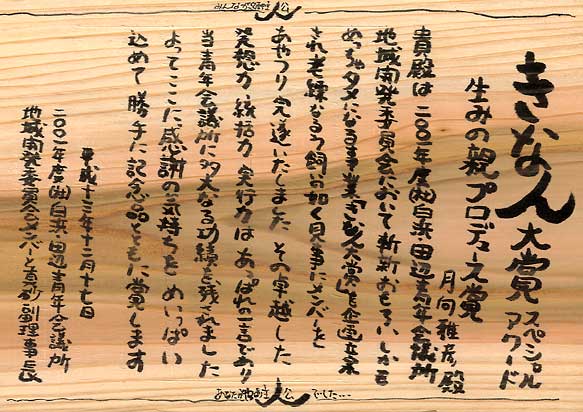 みんなが主役
きなん大賞 スペシャルアワード
生みの親プロデュース賞
月向雅彦殿
貴殿は二〇〇一年度(社)白浜・田辺青年会議所
地域開発委員会において斬新おもろいしかも
めっちゃタメになる事業「きなん大賞」を企画立案
され老練なるう飼の如く見事にメンバーを
あやつり完遂いたしました その卓越した
発想力 統括力 実行力は あっぱれの一言であり
当青年会議所に多大なる功績を残されました
よってここに感謝の気持ちを めいっぱい
込めて 勝手に記念品とともに賞します
平成十三年十二月十七日
二〇〇一年度(社)白浜・田辺青年会議所
地域開発委員会メンバーと真砂副理事長
あなたが主役 でした…